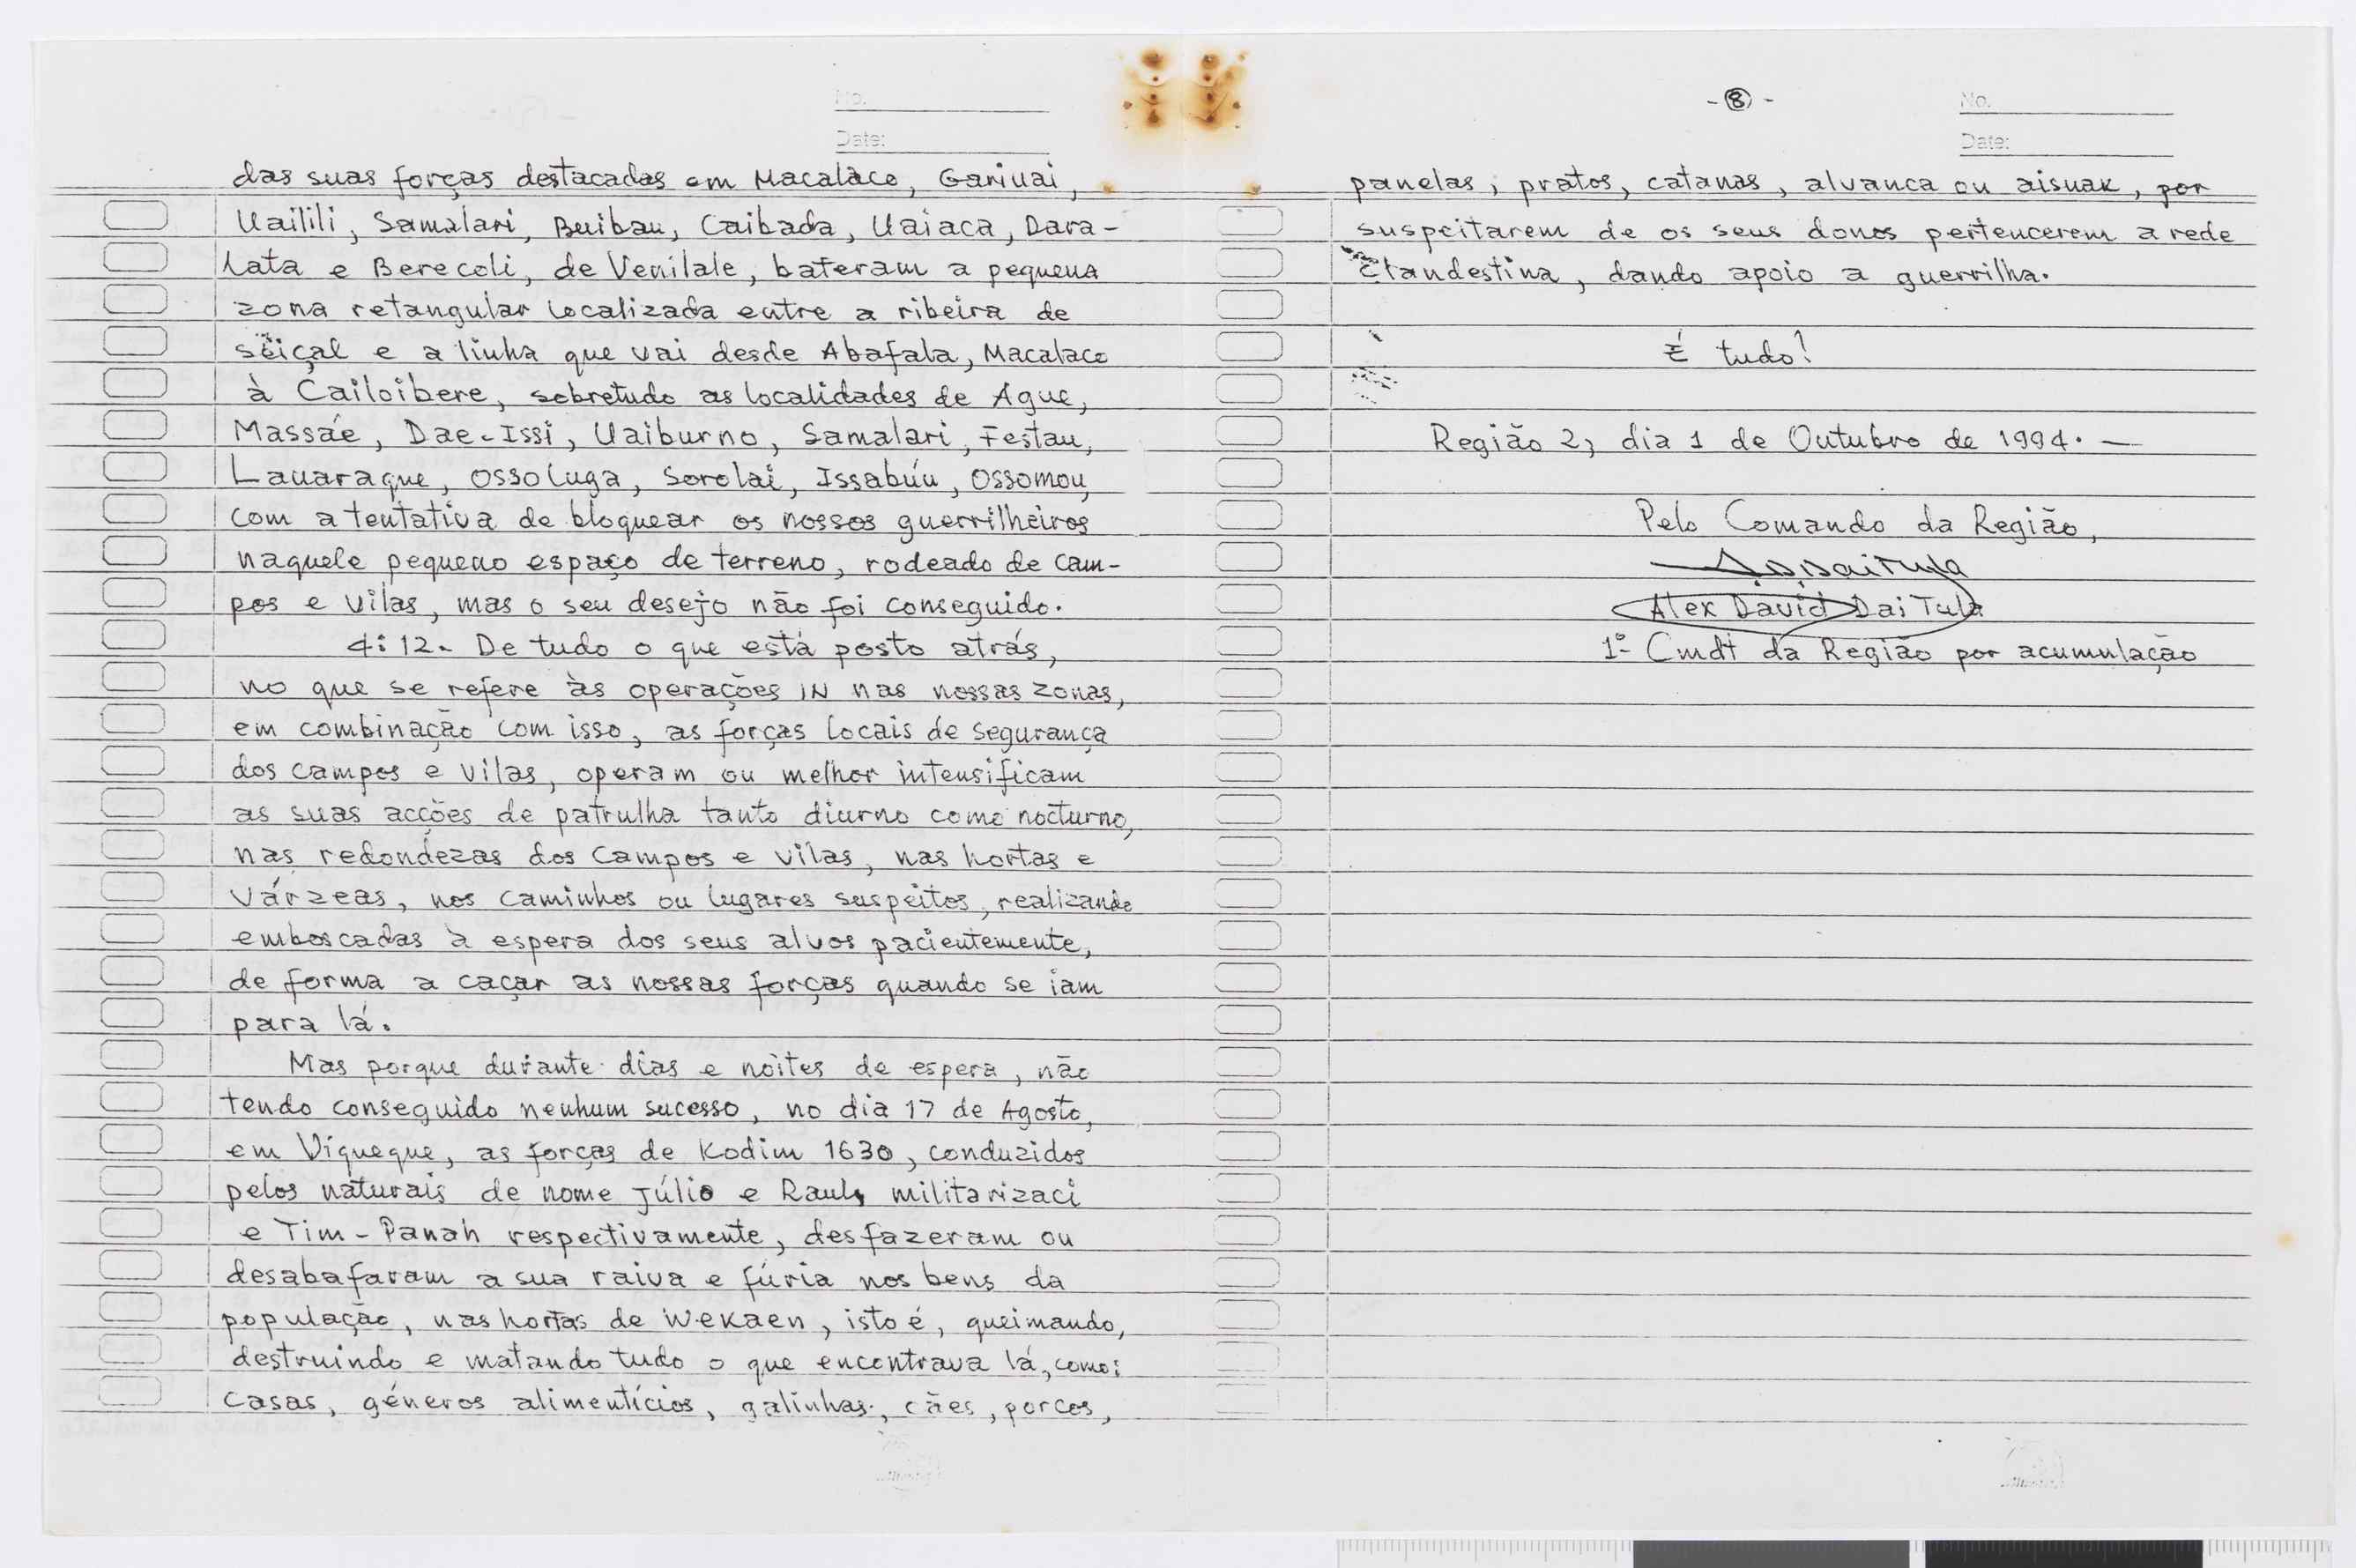 No.
Date:
das suas forças destacadas em Macalàco, Gariuai,
Uailili, Samalari, Buibau, Caibada, Uaiaca, Dara-
lata e Berecoli, de Venilale, bateram a pequena
zona retangular localizada entre a ribeira de
seiçal e a linha que vai desde Abafala, Macalaco
à Cailoibere, sobretudo as localidades de Ague,
Massáe, Dae-Issi, Uaiburno, Samalari, Festau,
Lauaraque, Ossoluga, Sorolai, Issabúu, Ossomou,
com a tentativa de bloquear os nossos guerrilheiros
naquele pequeno espaço de terreno, rodeado de cam-
pos e vilas, mas o seu desejo não foi conseguido.
4:12. De tudo o que está posto atrás,
no que se refere às operações IN nas nossas zonas,
em combinação com isso, as forças locais de segurança
dos campos e vilas, operam ou melhor intensificam
as suas acções de patrulha tanto diurno como nocturno,
nas redondezas dos campos e vilas, nas hortas e
várzeas, nos caminhos ou lugares suspeitos, realizando
emboscadas à espera dos seus alvos pacientemente,
de forma a caçar as nossas forças quando se iam
para lá.
Mas porque durante dias e noites de espera, não
tendo conseguido nenhum sucesso, no dia 17 de Agosto,
em Viqueque, as forças de Kodim 1630, conduzidos
pelos naturais de nome Júlio e Raul, militarizaci
e Tim-Panah respectivamente, desfazeram ou
desabafaram a sua raiva e fúria nos bens da
população, nas hortas de Wekaen, isto é, queimando,
destruindo e matando tudo o que encontrava lá, como:
casas, géneros alimentícios, galinhas, cães, porcos,
- 8 -
No.
Date:
panelas, pratos, catanas, alvanca ou aisuak, por
suspeitarem de os seus donos pertencerem a rede
clandestina, dando apoio a guerrilha.
É tudo!
Região 2, dia 1 de Outubro de 1994. —
Pelo Comando da Região,
Alex David Dai Tula
1º Cmdt da Região por acumulação